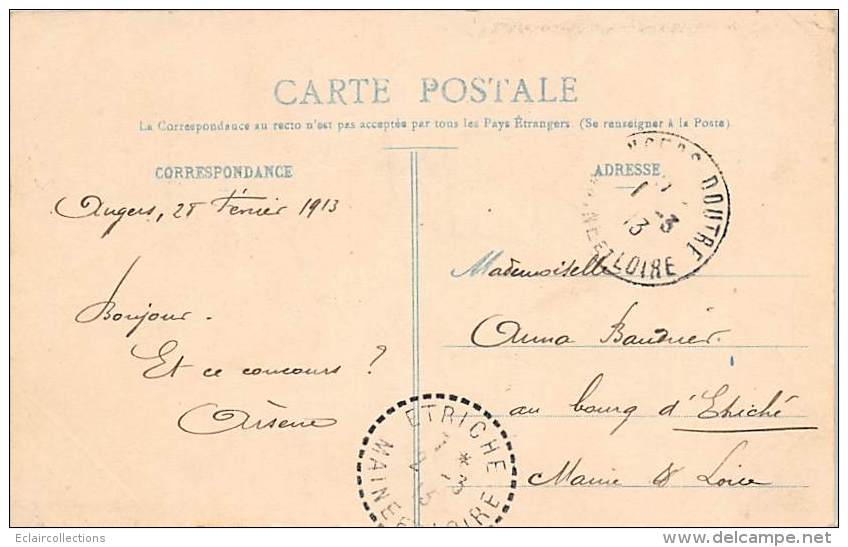 CARTE POSTALE
La Correspondance au recto n'est pas acceptée par tous les Pays Étrangers. (Se renseigner à la Poste)
CORRESPONDANCE
Angers, 28 février 1913
Bonjour.
Et ce concours ?
Arsène
ADRESSE
Mademoiselle
Anna Baudrier.
au bourg d'Etriché
Maine & Loire
ANGERS DOUTRE
1 -3
13
MAINE ET LOIRE
ETRICHE
MAINE ET LOIRE
Eclaircollections
www.delcampe.net